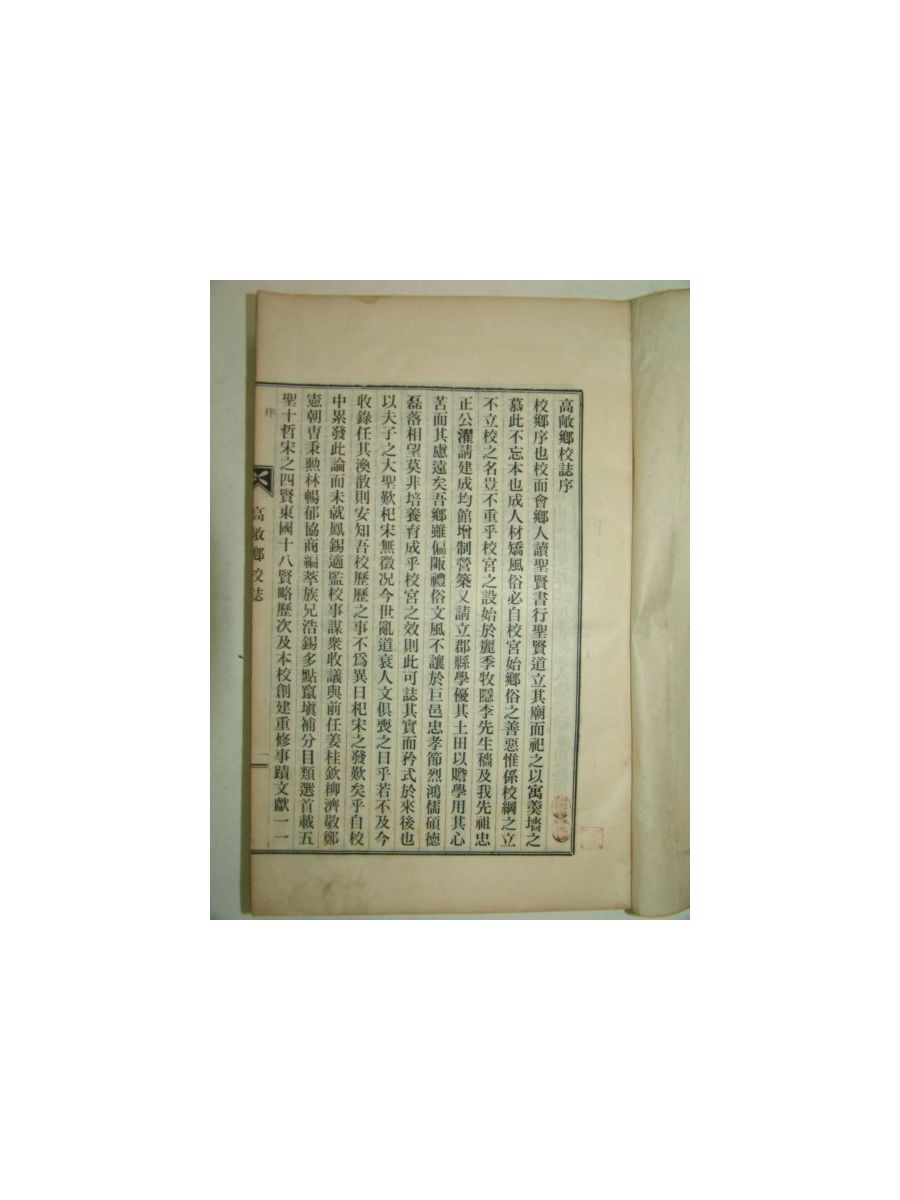 高敞鄉校誌序
校鄉序也校而會鄉人讀聖賢書行聖賢道立其廟而祀之以寓羹墻之
慕此不忘本也成人材矯風俗必自校宮始鄉俗之善惡惟係校綱之立
不立校之名豈不重乎校宮之設始於麗季牧隱李先生穡及我先祖忠
正公濯請建成均館增制營築又請立郡縣學優其土田以贍學用其心
苦而其慮遠矣吾鄉雖偏陬禮俗文風不讓於巨邑忠孝節烈鴻儒碩德
磊落相望莫非培養育成乎校宮之效則此可誌其實而矜式於來後也
以夫子之大聖歎杞宋無徵况今世亂道衰人文俱喪之日乎若不及今
收錄任其渙散則安知吾校歷歷之事不爲異日杞宋之發歎矣乎自校
中累發此論而未就鳳錫適監校事謀衆收議與前任姜桂欽柳濟敬鄭
憲朝曺秉勲林暢郁協商編萃族兄浩錫多點竄塡補分目類選首載五
聖十哲宋之四賢東國十八賢略歷次及本校創建重修事蹟文獻一一
序
高敞鄉校誌
一